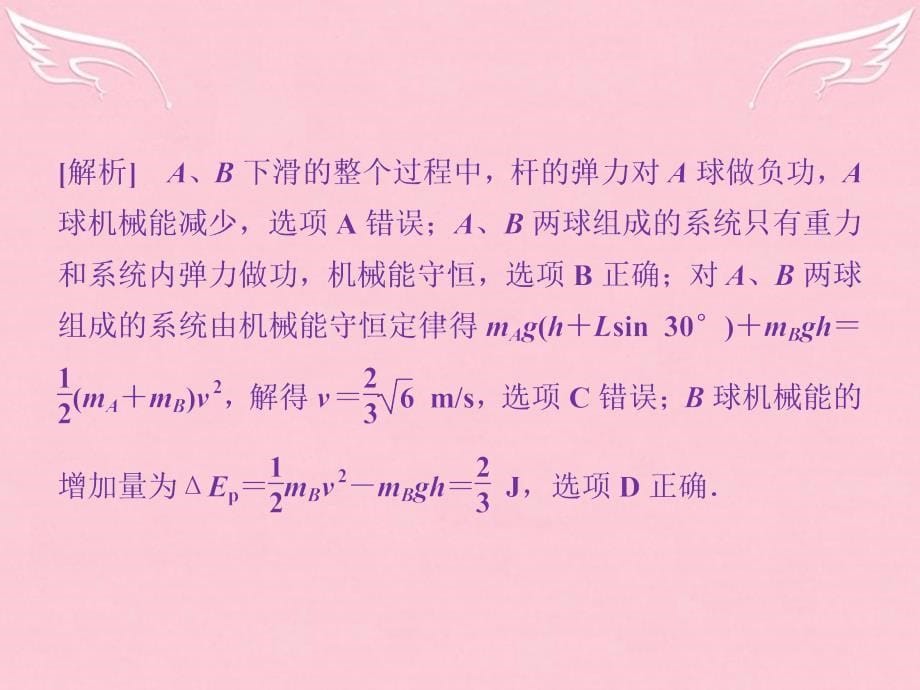 [解析] A、B 下滑的整个过程中，杆的弹力对 A 球做负功，A
球机械能减少，选项 A 错误；A、B 两球组成的系统只有重力
和系统内弹力做功，机械能守恒，选项 B 正确；对 A、B 两球
组成的系统由机械能守恒定律得 m_Ag(h＋Lsin 30°)＋m_Bgh＝
1/2(m_A＋m_B)v²，解得 v＝2/3√6 m/s，选项 C 错误；B 球机械能的
增加量为 ΔE_p＝1/2m_Bv²－m_Bgh＝2/3 J，选项 D 正确．